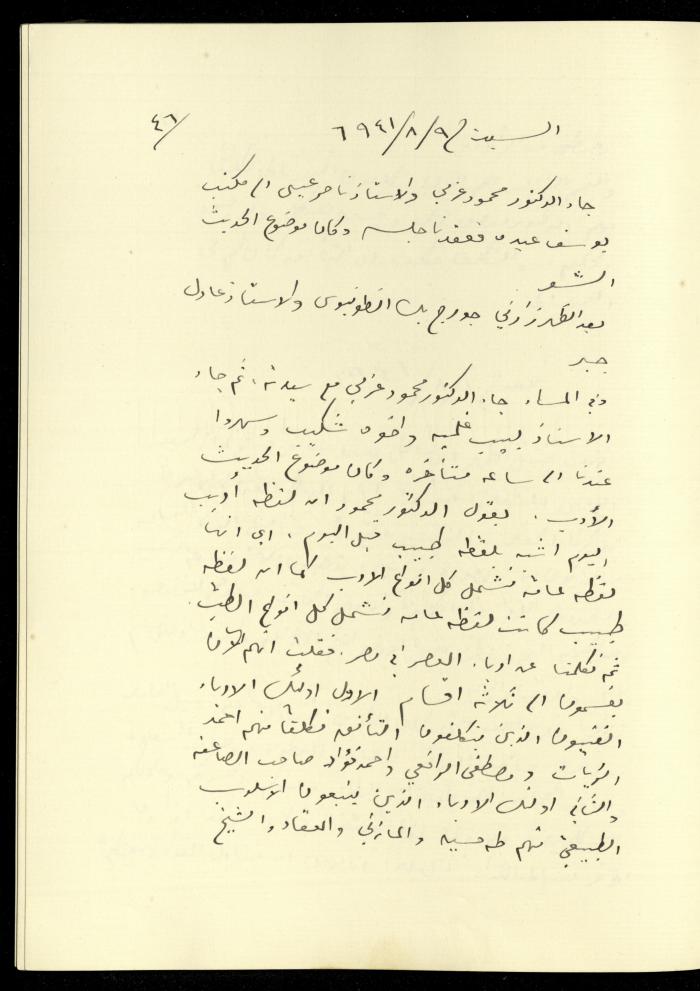 ٤٦/
السبت في ٩/٨/٩٤١
جاء الدكتور محمود عزمي والاستاذ ناصر عيسى الى مكتب
يوسف عبده فعقدنا جلسه وكان موضوع الحديث
الشعر
بعد الظهر زارني جورج بك انطونيوس والاستاذ عادل
جبر
وفي المساء جاء الدكتور محمود عزمي مع سيدته، ثم جاء
الاستاذ لبيب غلميه واخوه شكيب وسهروا
عندنا الى ساعه متأخره وكان موضوع الحديث
الأدب. يقول الدكتور محمود ان لفظه أديب
اليوم اشبه بلفظه طبيب قبل اليوم، اي انها
لفظه عامة تشمل كل انواع الادب كما ان لفظه
طبيب كانت لفظه عامه تشمل كل انواع الطب.
ثم تكلمنا عن ادباء العصر في مصر. فقلت انهم الآن
يقسمون الى ثلاثة اقسام الاول اولئك الادباء
الفنيون الذين يتكلفون التأنق تكلفا منهم احمد
الزيات ومصطفى الرافعي واحمد فؤاد صاحب الصاعقه
والثاني اولئك الادباء الذين يتبعون الاسلوب
الطبيعي منهم طه حسين والمازني والعقاد والشيخ